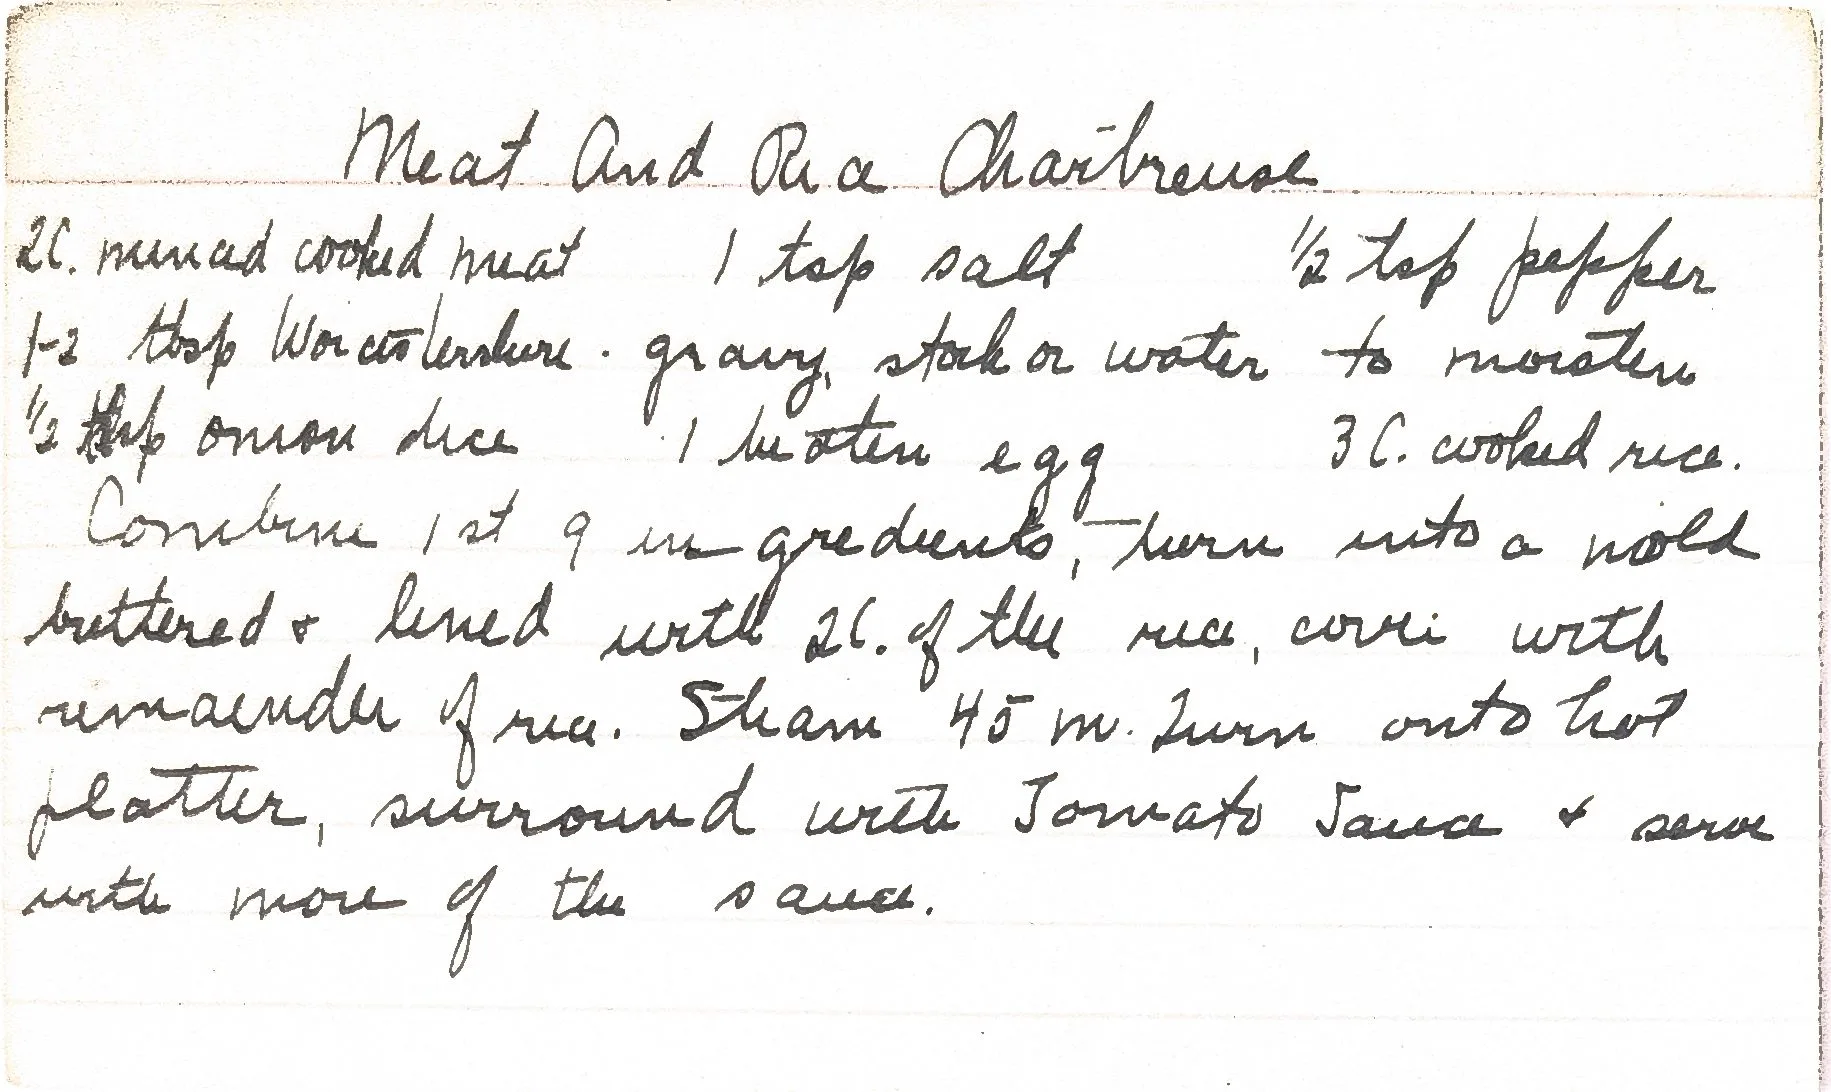 Meat And Rice Chartreuse
2C. minced cooked meat 1 tsp salt 1/2 tsp pepper
1-2 tbsp Worcestershire. gravy, stock or water to moisten
1/2 tbsp onion dice 1 beaten egg 3 C. cooked rice.
Combine 1st 9 ingredients, turn into a mold
buttered & lined with 2C. of the rice, cover with
remainder of rice. Steam 45 m. Turn onto hot
platter, surround with Tomato Sauce & serve
with more of the sauce.